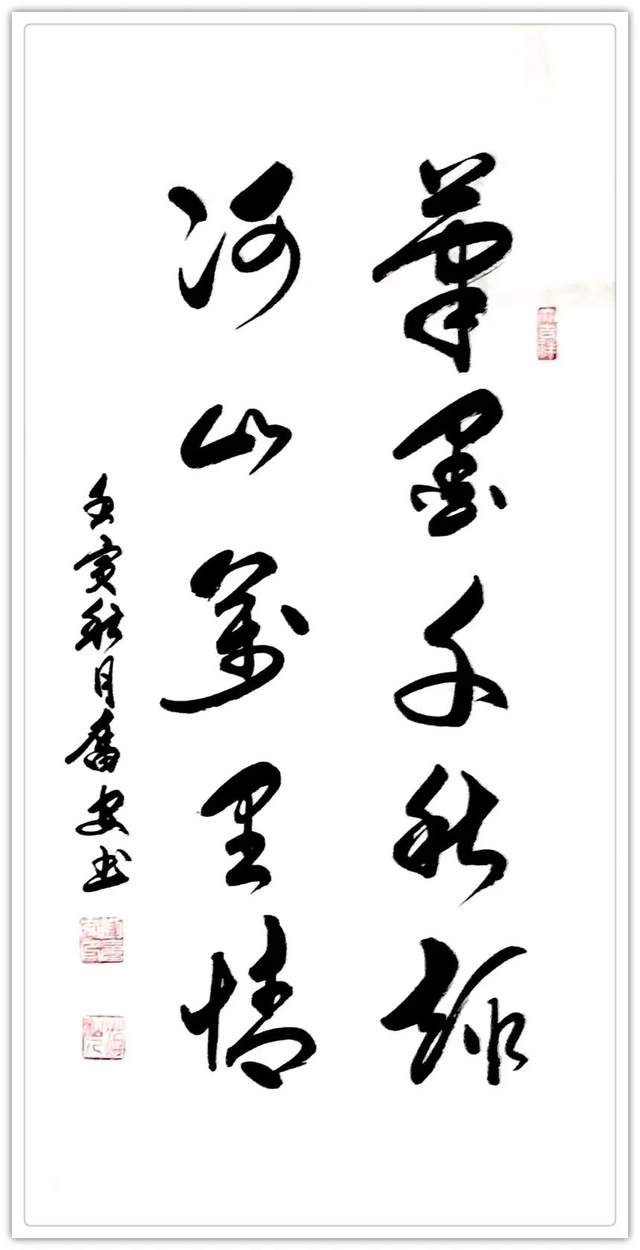 笔墨千秋趣
河山萬里情
壬寅秋月奮安书